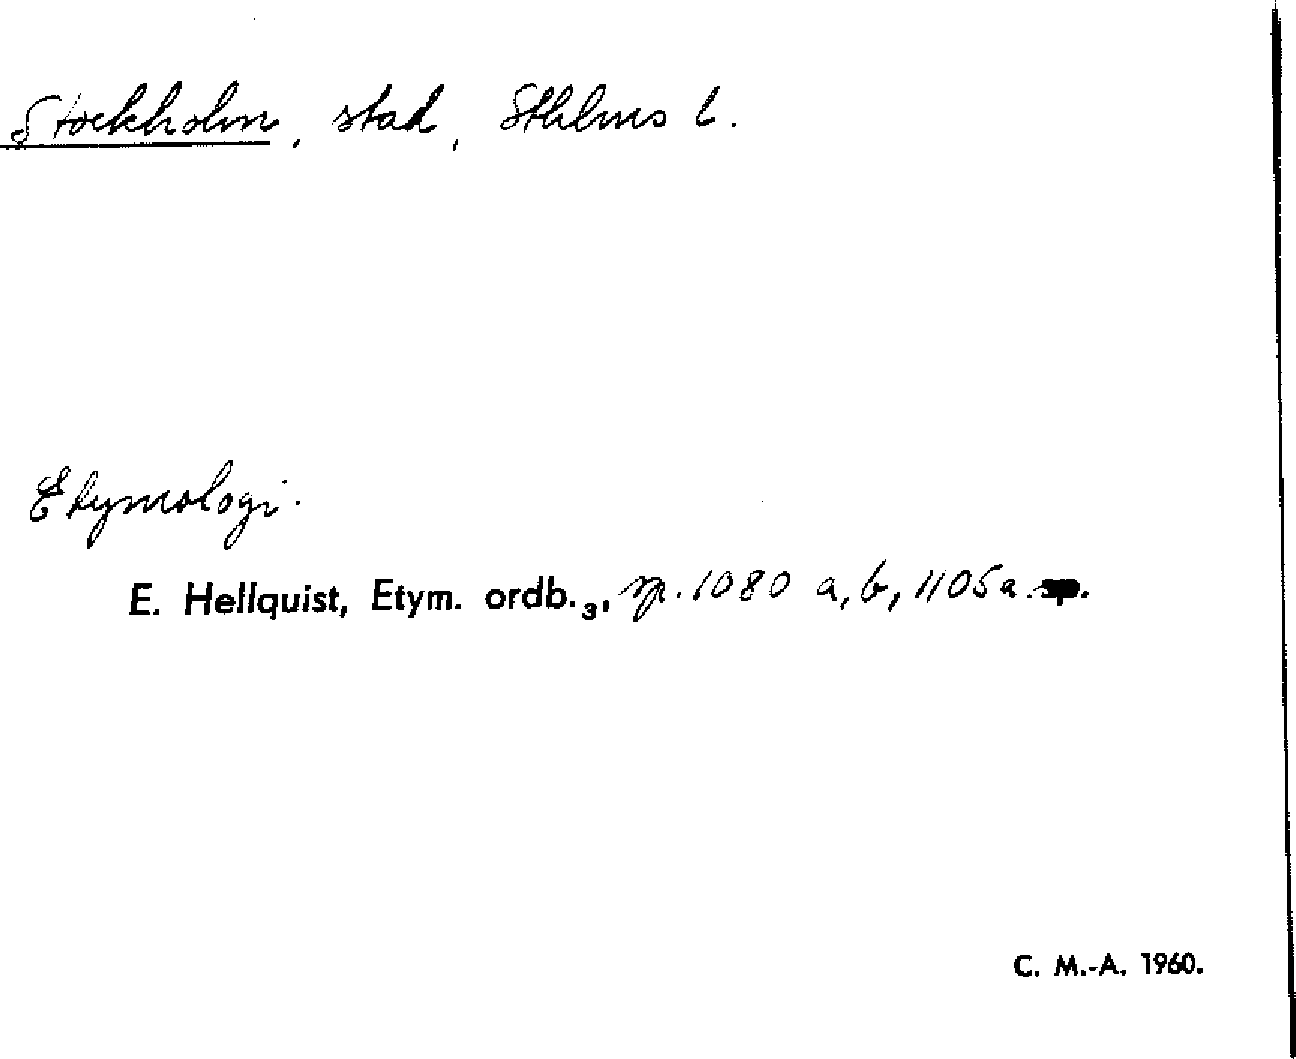 Stockholm, stad, Sthlms l.
Etymologi.
E. Hellquist, Etym. ordb.3, sp. 1080 a, b, 1105 a.
C. M.-A. 1960.